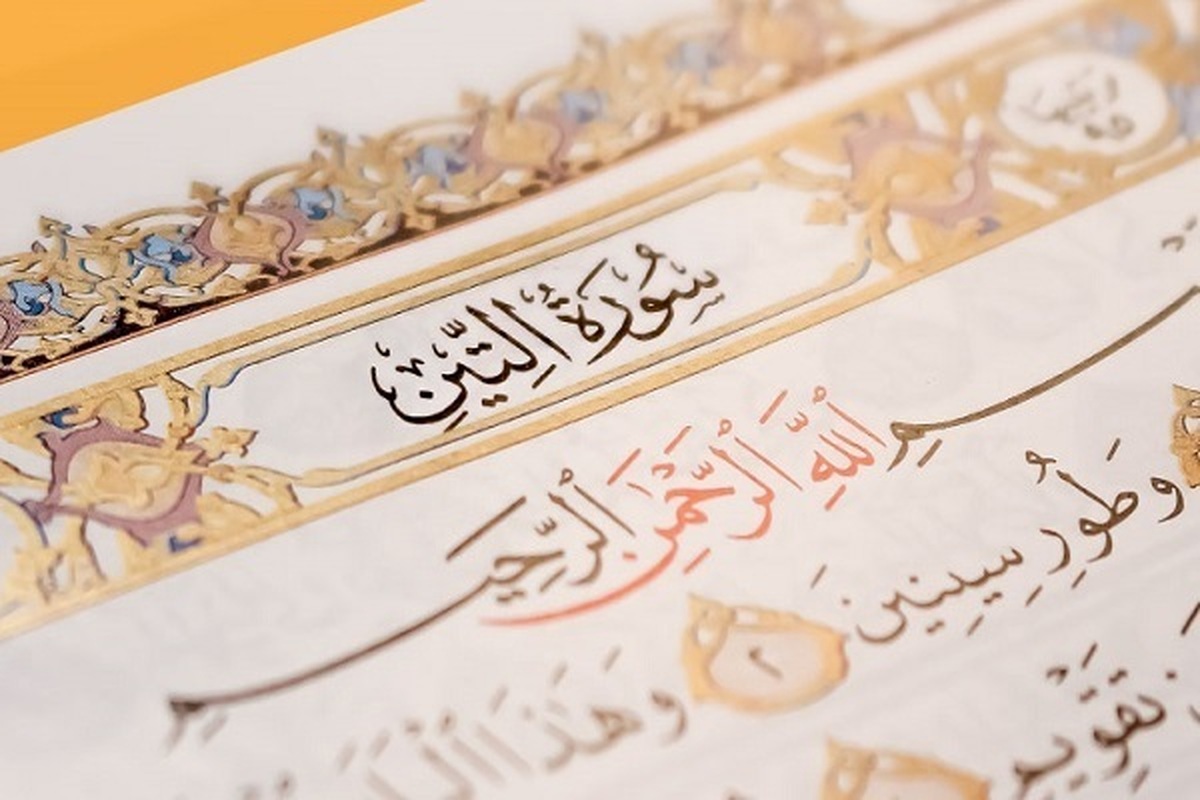 سُورَةُ التِّينِ
بِسْمِ ٱللَّهِ ٱلرَّحْمَٰنِ ٱلرَّحِيمِ
وَطُورِ سِينِينَ ٢ وَهَٰذَا ٱلْبَلَدِ
تَقْوِيمٍ